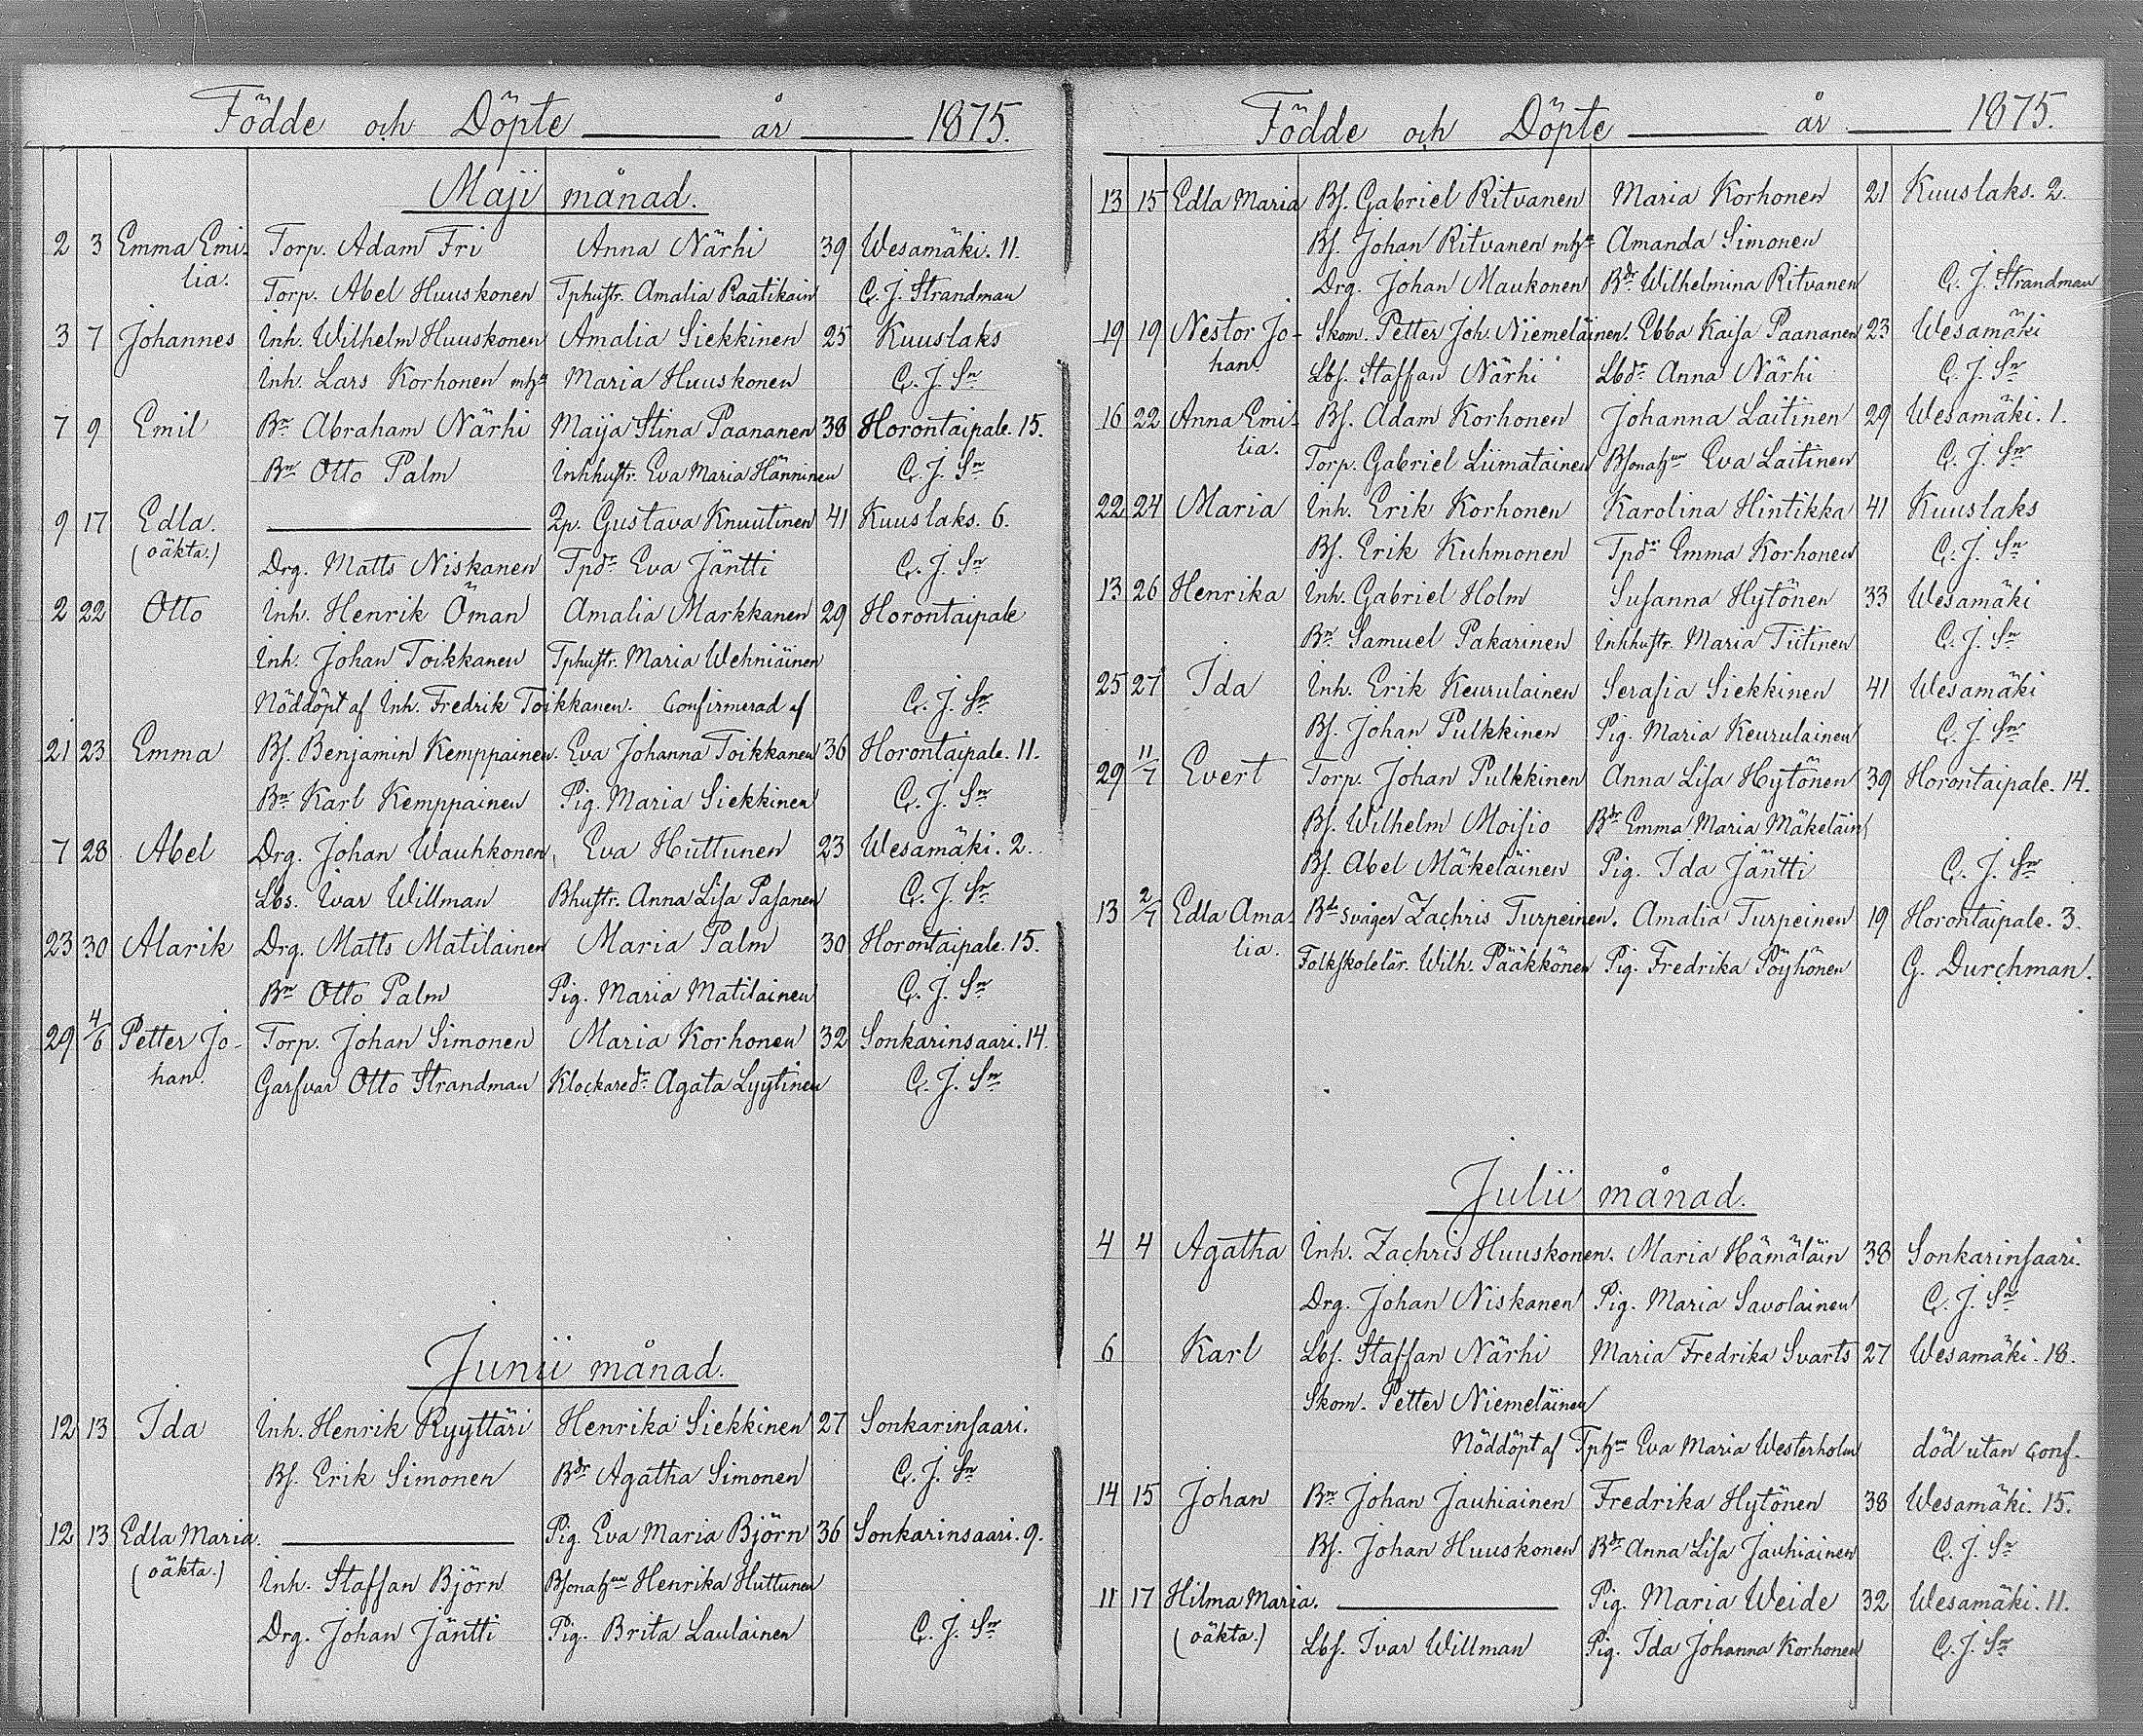 Födde och Döpte ——— år ——— 1875.
Maji månad.
2 3 Emma Emi- Torp. Adam Fri Anna Närhi 39 Wesamäki. 11.
lia. Torp. Abel Huuskonen Tphustr. Amalia Raatikain C. J. Strandman
3 7 Johannes Inh. Wilhelm Huuskonen Amalia Siekkinen 25 Kuuslaks
Inh. Lars Korhonen Maria Huuskonen C. J. Sn
7 9 Emil Bn Abraham Närhi Maija Stina Paananen 38 Horontaipale. 15.
Bn Otto Palm Inhhustr. Eva Maria Hänninen C. J. Sn
9 17 Edla. ——— 2p. Gustava Knuutinen 41 Kuuslaks. 6.
(oäkta.) Drg. Matts Niskanen Tpdr Eva Jäntti C. J. Sn
2 22 Otto Inh. Henrik Öman Amalia Markkanen 29 Horontaipale
Inh. Johan Toikkanen Tphustr. Maria Wehniäinen
Nöddöpt af Inh. Fredrik Toikkanen. Confirmerad af C. J. Sn
21 23 Emma Bs. Benjamin Kemppainen. Eva Johanna Toikkanen 36 Horontaipale. 11.
Bn Karl Kemppainen Pig. Maria Siekkinen C. J. Sn
7 28 Abel Drg. Johan Wauhkonen, Eva Huttunen 23 Wesamäki. 2.
Lbs. Ivar Willman Bhustr. Anna Lisa Pasanen C. J. Sn
23 30 Alarik Drg. Matts Matilainen Maria Palm 30 Horontaipale. 15.
Bn Otto Palm Pig. Maria Matilainen C. J. Sn
29 4/6 Petter Jo- Torp. Johan Simonen Maria Korhonen 32 Sonkarinsaari. 14.
han. Garfvar Otto Strandman Klockaredr Agata Lyytinen C. J. Sn
Junii månad.
12 13 Ida Inh. Henrik Ryyttäri Henrika Siekkinen 27 Sonkarinsaari.
Bs. Erik Simonen Bdr Agatha Simonen C. J. Sn
12 13 Edla Maria. ——— Pig. Eva Maria Björn 36 Sonkarinsaari. 9.
(oäkta.) Inh. Staffan Björn Henrika Huttunen
Drg. Johan Jäntti Pig. Brita Laulainen C. J. Sn
Födde och Döpte ——— år ——— 1875.
13 15 Edla Maria Bs. Gabriel Ritvanen Maria Korhonen 21 Kuuslaks. 2.
Bs. Johan Ritvanen Amanda Simonen
Drg. Johan Maukonen Bdr Wilhelmina Ritvanen C. J. Strandman
19 19 Nestor Jo- Skom. Petter Joh. Niemeläinen. Ebba Kaisa Paananen 23 Wesamäki
han Lbs. Staffan Närhi Lbdr Anna Närhi C. J. Sn
16 22 Anna Emi- Bs. Adam Korhonen Johanna Laitinen 29 Wesamäki. 1.
lia. Torp. Gabriel Liimatainen Eva Laitinen C. J. Sn
22 24 Maria Inh. Erik Korhonen Karolina Hintikka 41 Kuuslaks
Bs. Erik Kuhmonen Tpdr Emma Korhonen C. J. Sn
13 26 Henrika Inh. Gabriel Holm Susanna Hytönen 33 Wesamäki
Bn Samuel Pakarinen Inhhustr. Maria Tiitinen C. J. Sn
25 27 Ida Inh. Erik Keurulainen Serafia Siekkinen 41 Wesamäki
Bs. Johan Pulkkinen Pig. Maria Keurulainen C. J. Sn
29 11/7 Evert Torp. Johan Pulkkinen Anna Lisa Hytönen 39 Horontaipale. 14.
Bs. Wilhelm Moisio Bdr Emma Maria Mäkeläin
Bs. Abel Mäkeläinen Pig. Ida Jäntti C. J. Sn
13 2/7 Edla Ama- Bds svåger Zachris Turpeinen. Amalia Turpeinen 19 Horontaipale. 3.
lia. Folkskolelär. Wilh. Pääkkönen Pig. Fredrika Pöyhönen G. Durchman.
Julii månad.
4 4 Agatha Inh. Zachris Huuskonen. Maria Hämäläin 38 Sonkarinsaari.
Drg. Johan Niskanen Pig. Maria Savolainen C. J. Sn
6 Karl Lbs. Staffan Närhi Maria Fredrika Svarts 27 Wesamäki. 18.
Skom. Petter Niemeläinen
Nöddöpt af Eva Maria Westerholm död utan conf.
14 15 Johan Bn Johan Jauhiainen Fredrika Hytönen 38 Wesamäki. 15.
Bs. Johan Huuskonen Bdr Anna Lisa Jauhiainen C. J. Sn
11 17 Hilma Maria. ——— Pig. Maria Weide 32 Wesamäki. 11.
(oäkta.) Lbs. Ivar Willman Pig. Ida Johanna Korhonen C. J. Sn